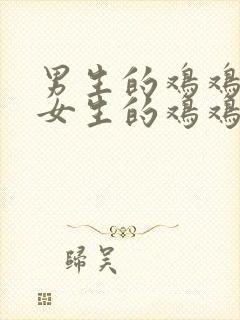 男生的鸡鸡
女生的鸡鸡
歸吴